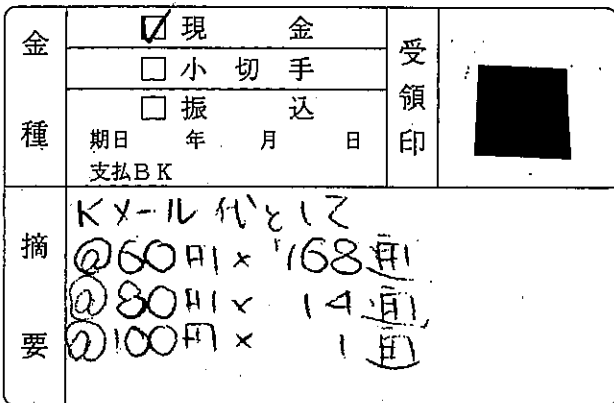 金種
☑ 現金
□ 小切手
□ 振込
期日 年 月 日
支払BK
受領印
摘要
Kメール代として
@60円×168冊
@80円×14冊
@100円×1冊